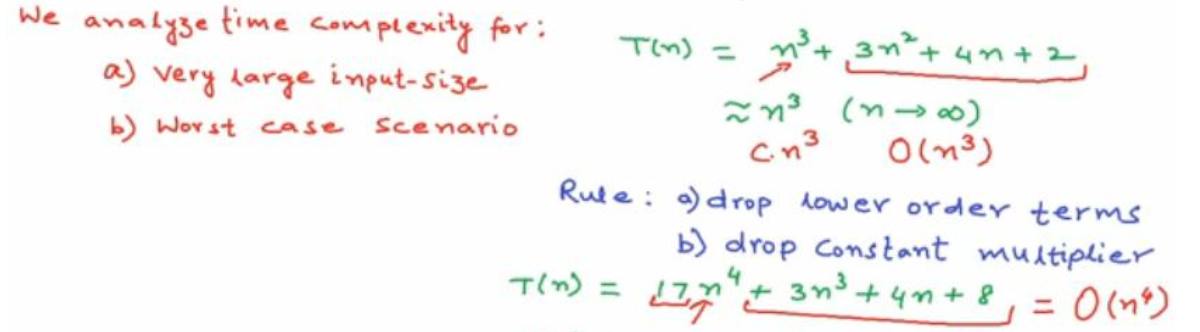 We analyze time complexity for:
a) Very large input-size
b) Worst case scenario
T(n) = n³ + 3n² + 4n + 2
≈ n³ (n → ∞)
C.n³ O(n³)
Rule: a) drop lower order terms
b) drop constant multiplier
T(n) = 17n⁴ + 3n³ + 4n + 8 = O(n⁴)